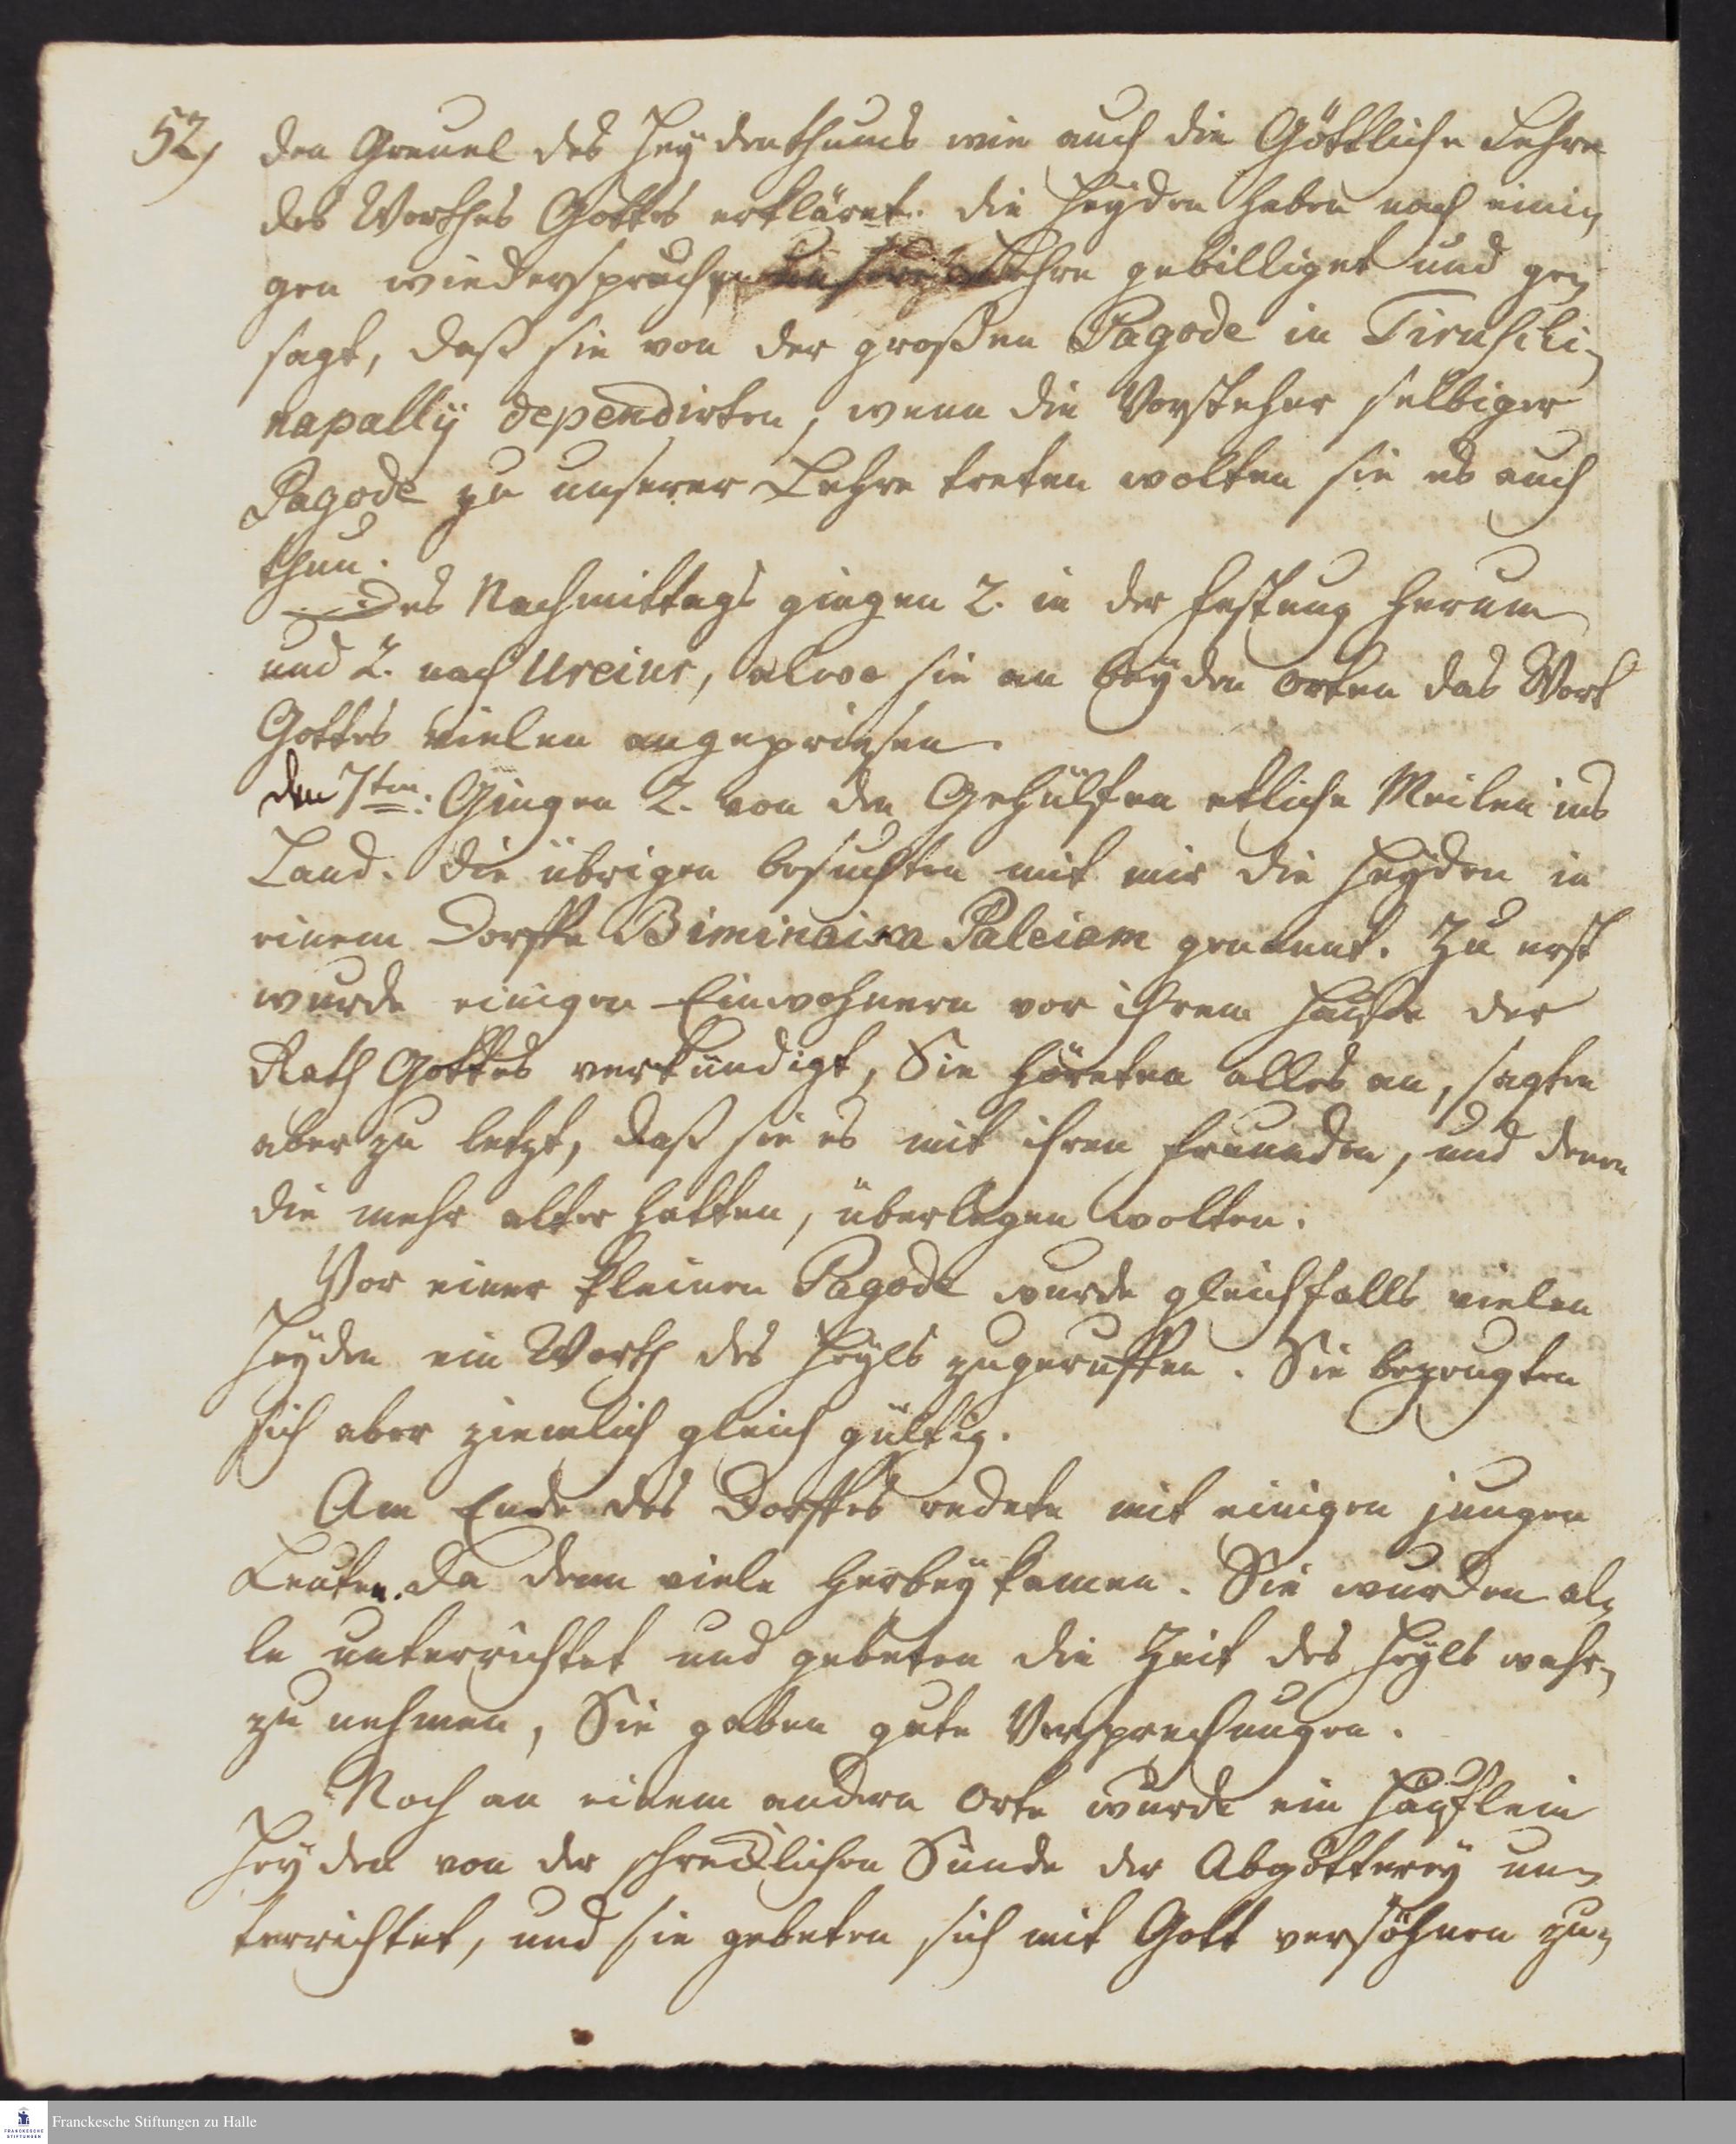 52,
den Greuel des Heydenthums wie auch die Göttliche Lehre
des Worthes Gottes erkläret. die Heyden haben nach eini¬
gen wiedersprüchen unsere Lehre gebilliget und ge¬
sagt, daß sie von der großen Pagode in Tirutschi¬
napally dependirten, wenn die Vorsteher selbiger
Pagode zu unserer Lehre treten wolten sie es auch
thun.
Des Nachmittags gingen 2. in der Festung herum
und 2. nach Ureiur, alwo sie an beyden Orten das Wort
Gottes vielen angepriesen.
den 7ten: Gingen 2. von den Gehülfen etliche Meilen ins
Land. die übrigen besuchten mit mir die Heyden in
einem Dorffe Biminaika Paleiam genannt. Zu erst
wurde einigen Einwohnern vor ihrem Hause der
Rath Gottes verkündigt, Sie höreten alles an, sagten
aber zu letzt, daß sie es mit ihren Freunden, und denen
die mehr alter hatten, überlegen wolten.
Vor einer kleinen Pagode wurde gleichfalls vielen
Heyden ein Worth des Heyls zugeruffen. Sie bezeugten
sich aber ziemlich gleich gültig.
Am Ende des Dorffes redete mit einigen jungen
Leuten. da denn viele herbey kamen. Sie wurden al¬
le unterrichtet und gebeten die Zeit des Heyls wahr¬
zu nehmen, Sie gaben gute Versprechungen.
Noch an einem andern Orte wurde ein Häuflein
Heyden von der schrecklichen Sünde der Abgötterey un¬
terrichtet, und sie gebeten sich mit Gott versöhnen zu¬
Franckesche Stiftungen zu Halle
FRANCKESCHE
STIFTUNGEN